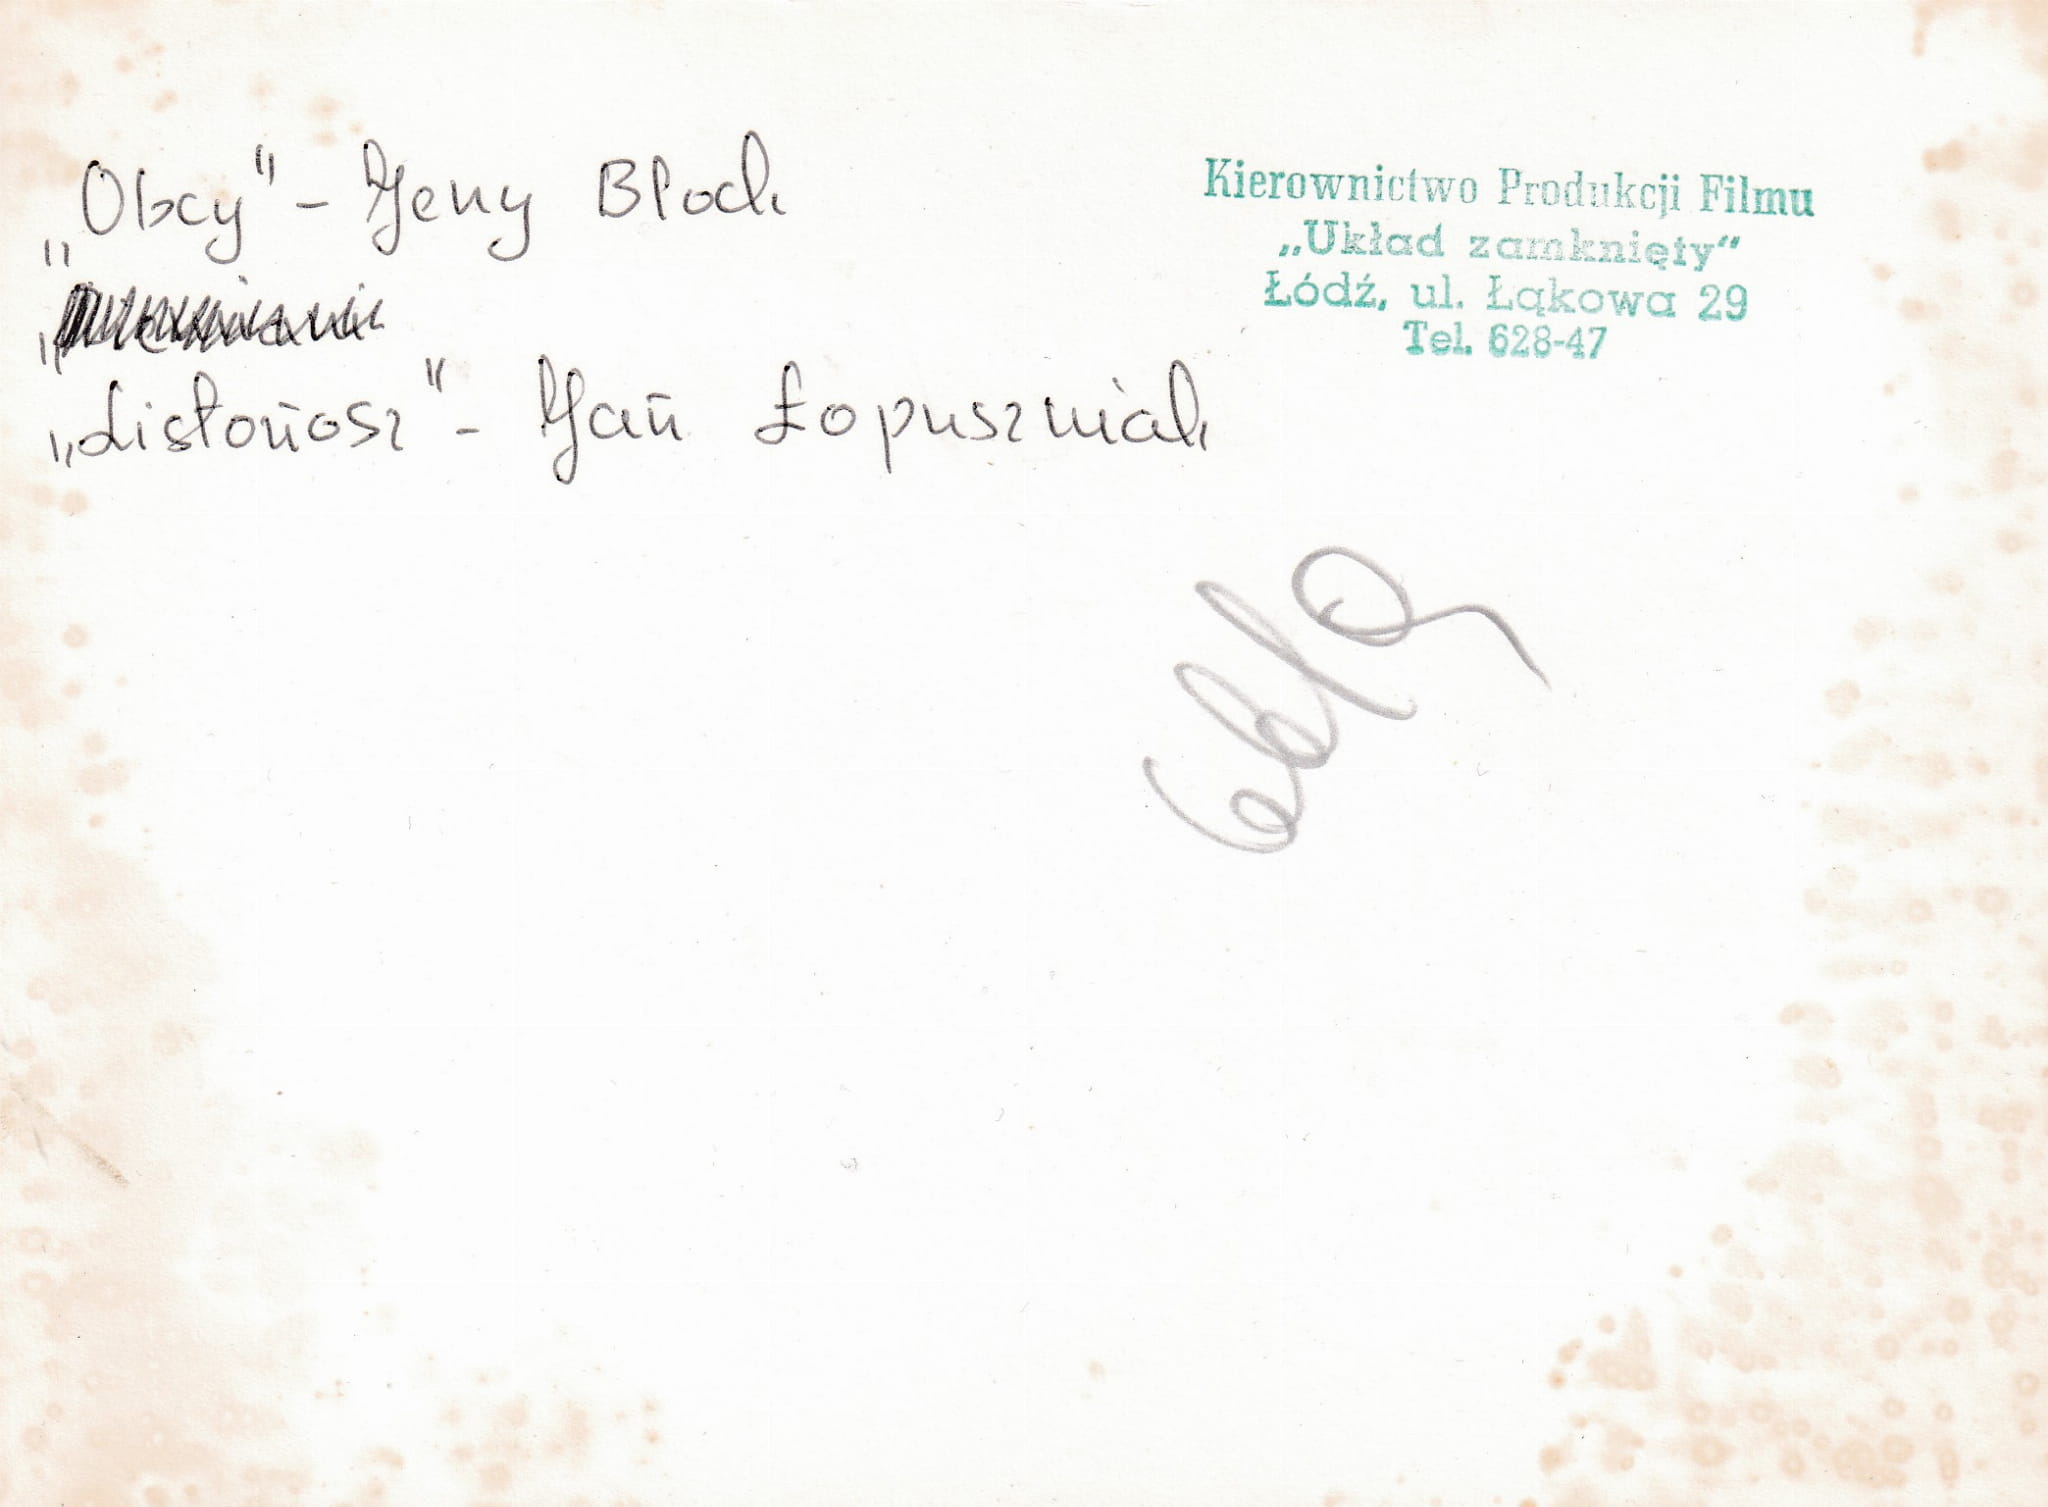 „Obcy" - Jerzy Błock
„Listonosz" - Jan Łopuszniak
Kierownictwo Produkcji Filmu
„Układ zamknięty"
Łódź, ul. Łąkowa 29
Tel. 628-47